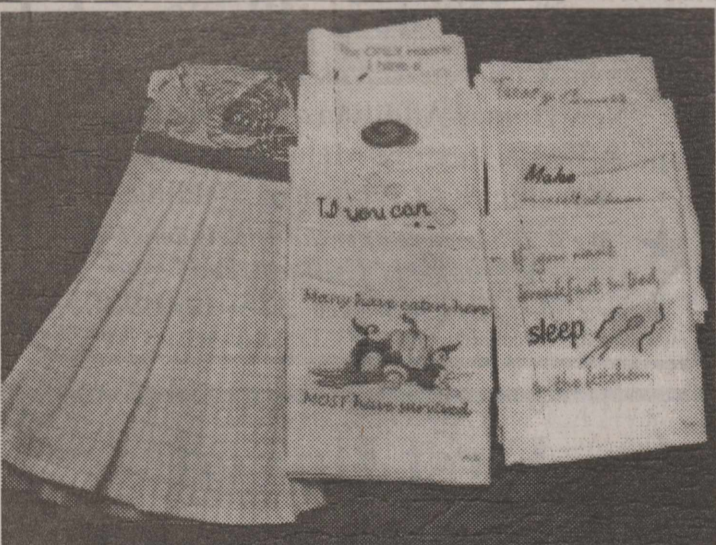 The ONLY reason
I have a
If you can
Many have eaten here
MOST have survived
Make
yourself at home
If you want
breakfast in bed,
sleep
in the kitchen